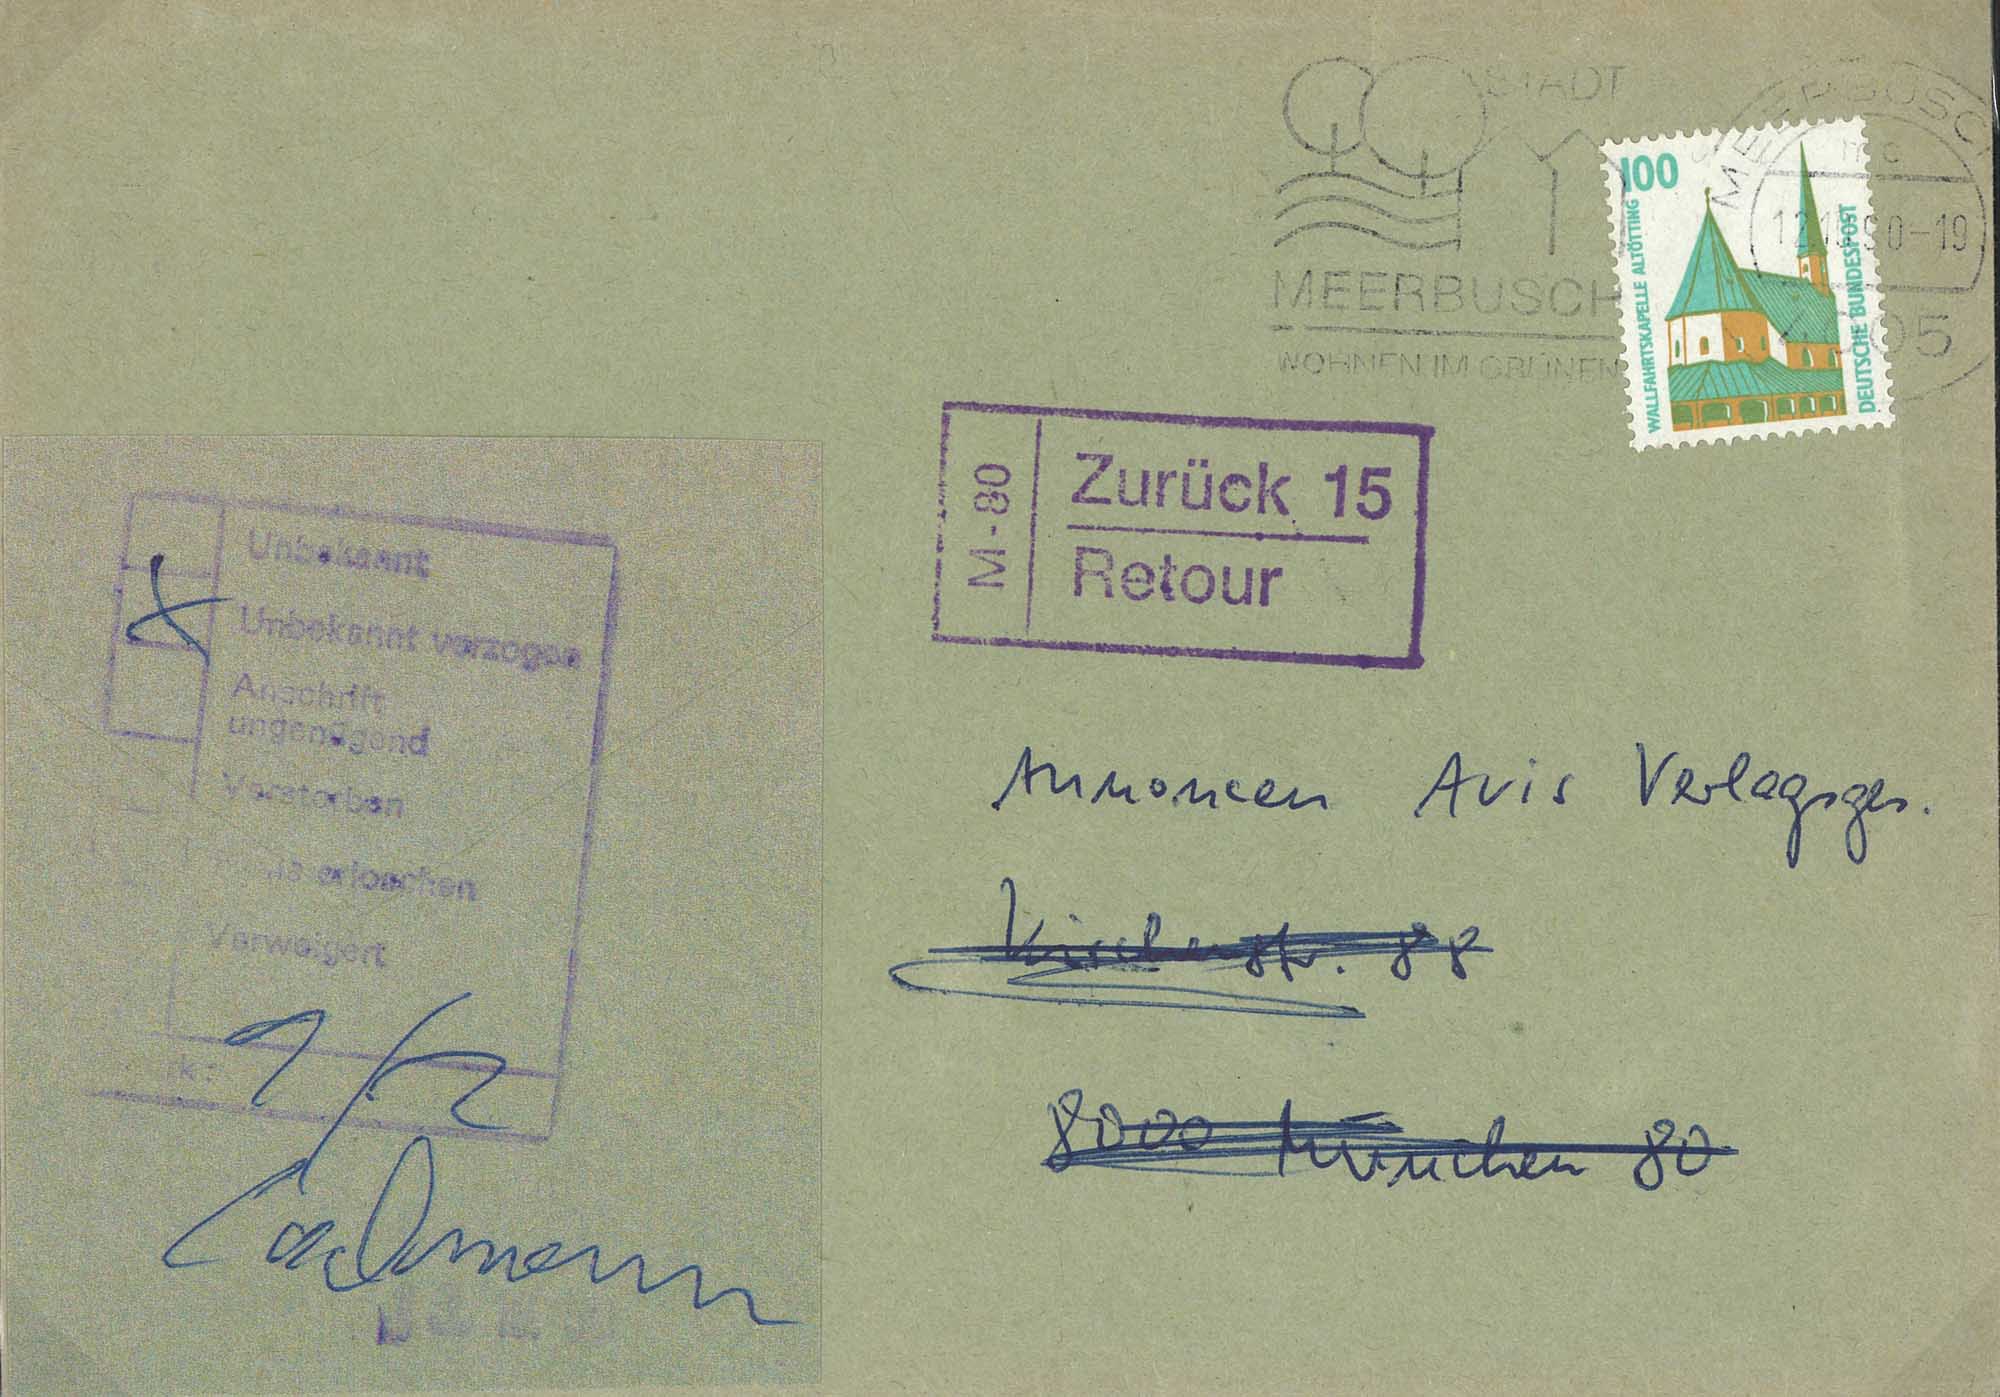 STADT
MEERBUSCH
WOHNEN IM GRÜNEN
MEERBUSCH
mc
4005
100
WALLFAHRTSKAPELLE ALTÖTTING
DEUTSCHE BUNDESPOST
M-80
Zurück 15
Retour
Unbekannt
Unbekannt verzogen
Anschrift
ungenügend
Verstorben
erloschen
Verweigert
1/2
Annoncen Avis Verlagsges.
Kirchenstr. 88
8000 München 80